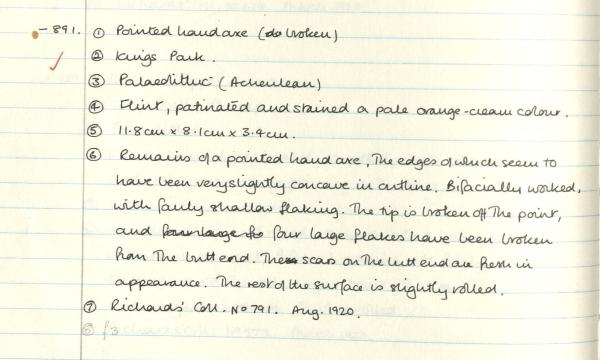 - 891. ① Pointed handaxe (do broken)
② Kings Park.
③ Palaeolithic (Acheulean)
④ Flint, patinated and stained a pale orange-cream colour.
⑤ 11.8cm x 8.1cm x 3.4cm.
⑥ Remains of a pointed handaxe, The edges of which seem to
have been very slightly concave in outline. Bifacially worked,
with fairly shallow flaking. The tip is broken off The point,
and four large fo four large flakes have been broken
from The butt end. These scars on The butt end are fresh in
appearance. The rest of the surface is slightly rolled.
⑦ Richards' Coll. No 791. Aug. 1920.
⑧ f3